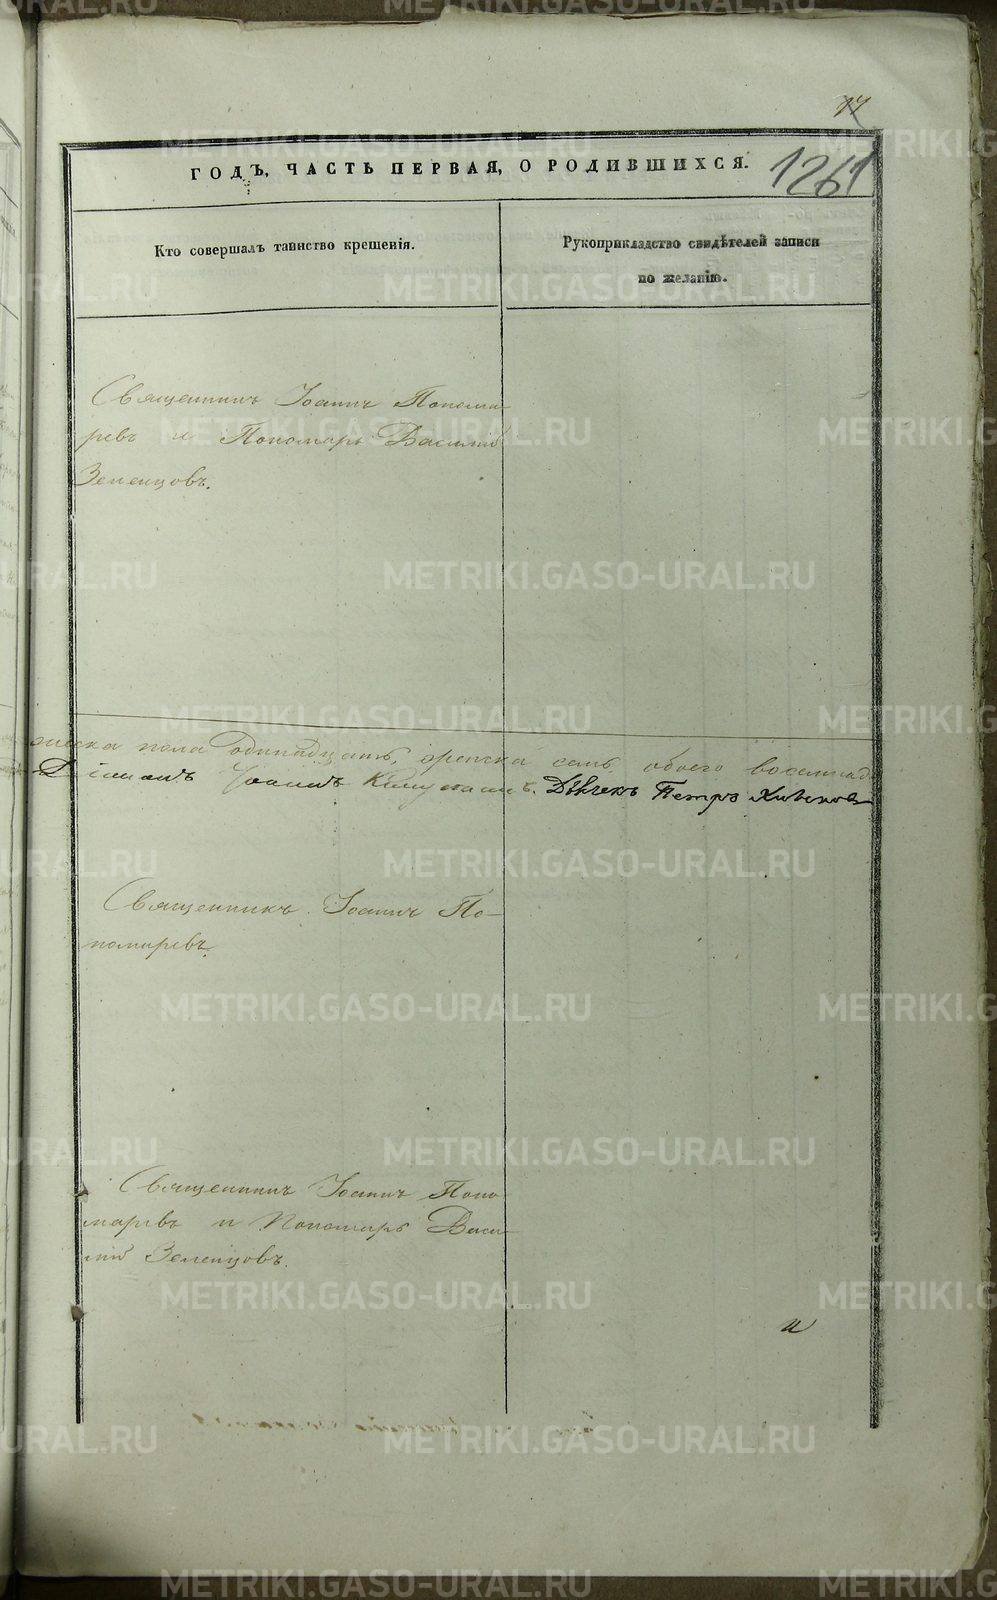 17
ГОДЪ, ЧАСТЬ ПЕРВАЯ, О РОДИВШИХСЯ.
1261
Кто совершалъ таинство крещенія.
Рукоприкладство свидѣтелей записи
по желанію.
Священникъ Іоаннъ Понома-
ревъ и Пономарь Василій
Зеленцовъ.
жеска пола одинадцать, женска семь, обоего восемнад
Діаконъ Іоаннъ Дьячекъ Петръ
Священникъ Іоаннъ По-
номаревъ.
Священникъ Іоаннъ Поно
маревъ и Пономарь Васи-
лій Зеленцовъ.
и
METRIKI.GASO-URAL.RU